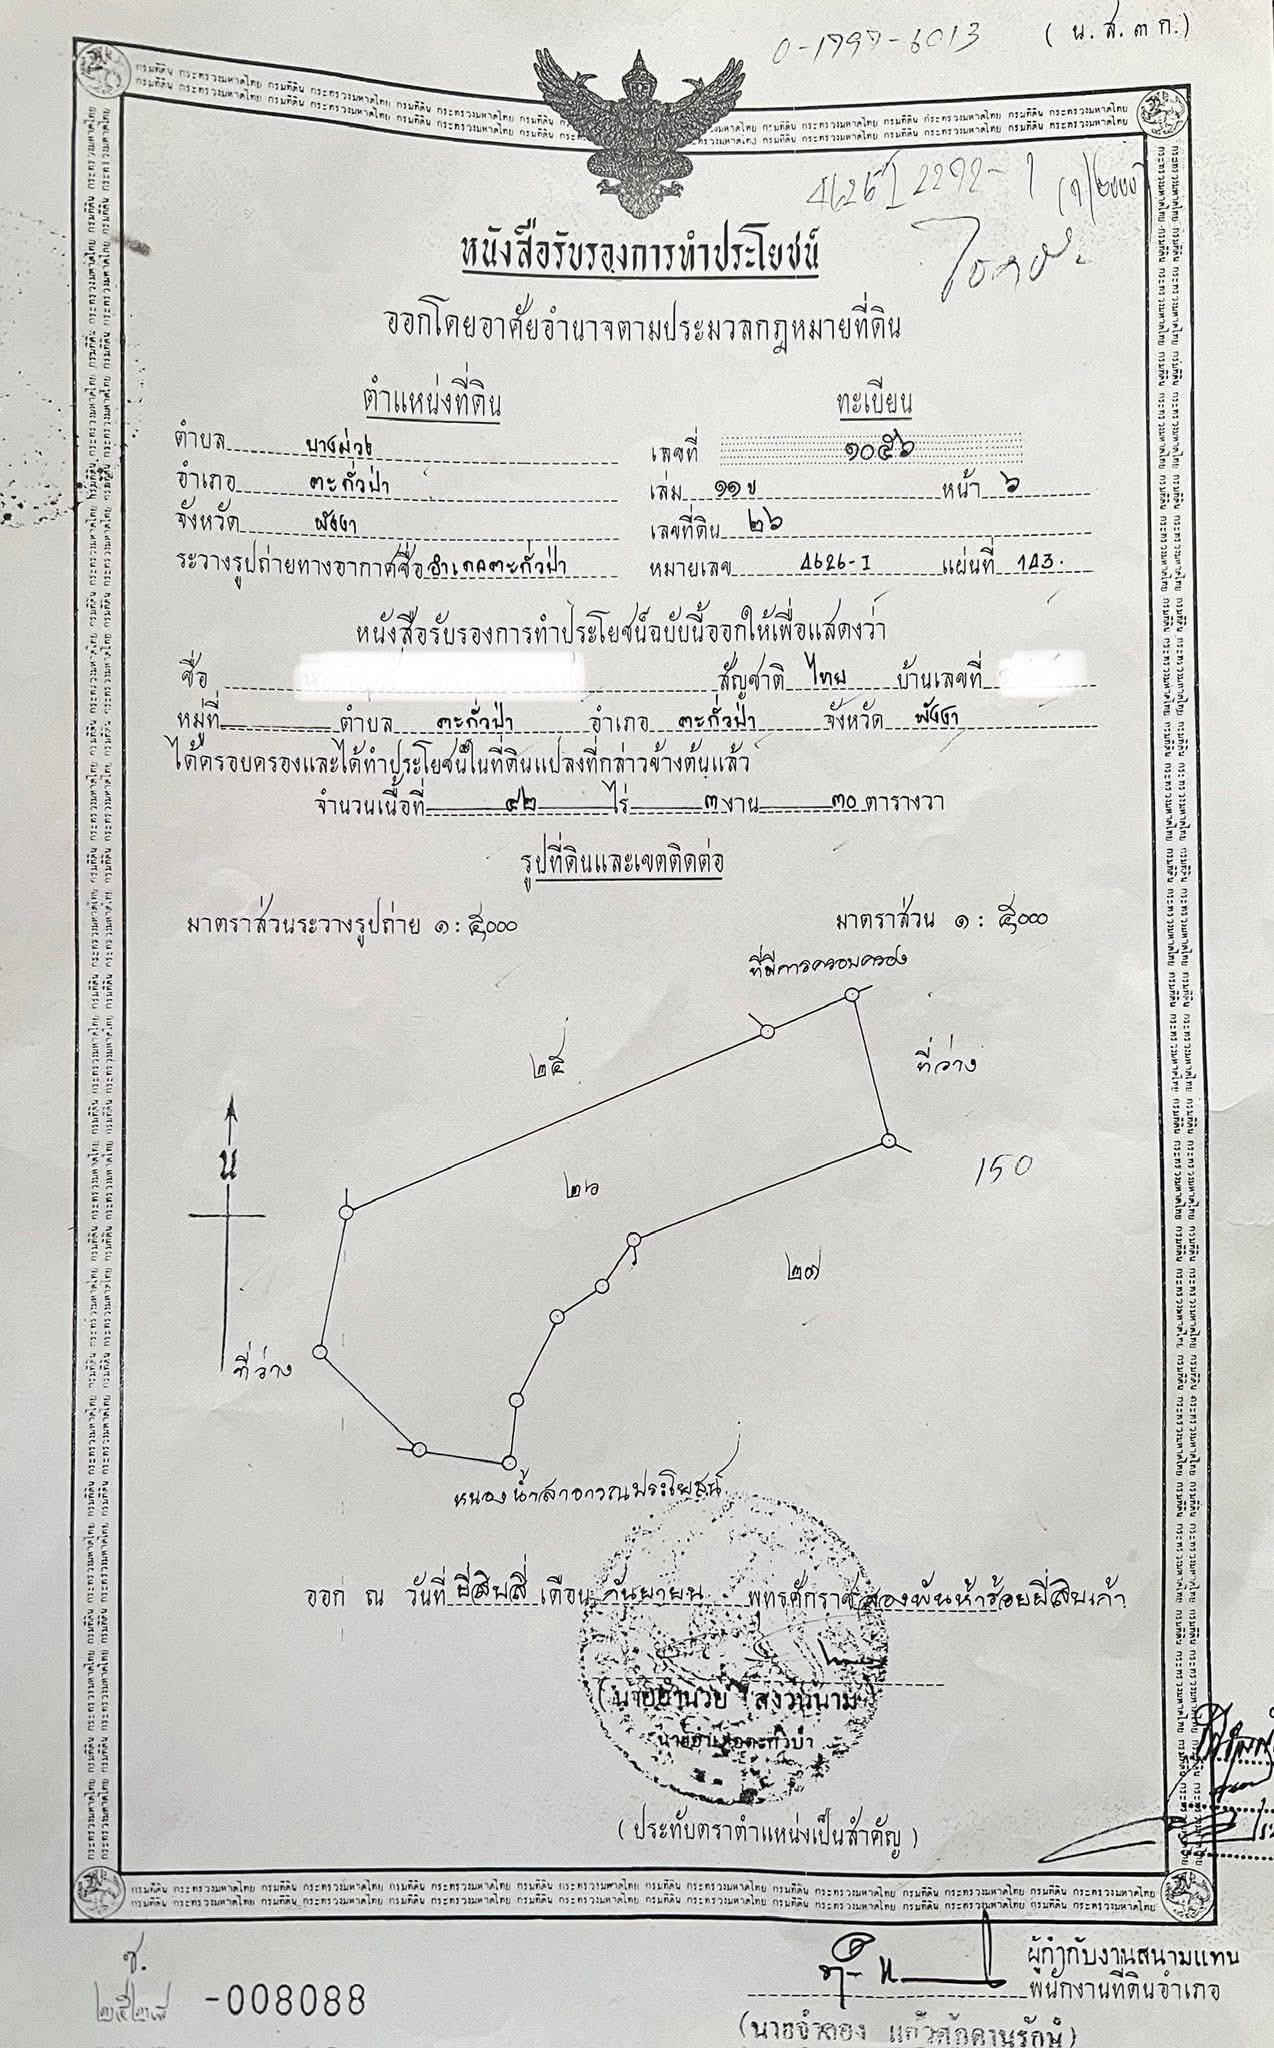 0-1797-6013 (น.ส.๓ ก.)
หนังสือรับรองการทำประโยชน์
ออกโดยอาศัยอำนาจตามประมวลกฎหมายที่ดิน
ตำแหน่งที่ดิน ทะเบียน
ตำบล บางม่วง เลขที่ ๑๐๕๖
อำเภอ ตะกั่วป่า เล่ม ๑๑ข หน้า ๖
จังหวัด พังงา เลขที่ดิน ๒๖
ระวางรูปถ่ายทางอากาศชื่อ อำเภอตะกั่วป่า หมายเลข 4626-I แผ่นที่ 143.
หนังสือรับรองการทำประโยชน์ฉบับนี้ออกให้เพื่อแสดงว่า
ชื่อ สัญชาติ ไทย บ้านเลขที่
หมู่ที่ ตำบล ตะกั่วป่า อำเภอ ตะกั่วป่า จังหวัด พังงา
ได้ครอบครองและได้ทำประโยชน์ในที่ดินแปลงที่กล่าวข้างต้นแล้ว
จำนวนเนื้อที่ ๔๒ ไร่ ๓ งาน ๓๐ ตารางวา
รูปที่ดินและเขตติดต่อ
มาตราส่วนระวางรูปถ่าย ๑ : ๕๐๐๐ มาตราส่วน ๑ : ๕๐๐๐
ที่มีการครอบครอง
๒๕ ที่ว่าง
น
๒๖ 150
๒๗
ที่ว่าง
หนองน้ำสาธารณประโยชน์
ออก ณ วันที่ ยี่สิบสี่ เดือน กันยายน พุทธศักราช สองพันห้าร้อยยี่สิบเก้า
(นายอำนวย สงวนนาม)
นายอำเภอตะกั่วป่า
(ประทับตราตำแหน่งเป็นสำคัญ)
ผู้กำกับงานสนามแทน
พนักงานที่ดินอำเภอ
-008088